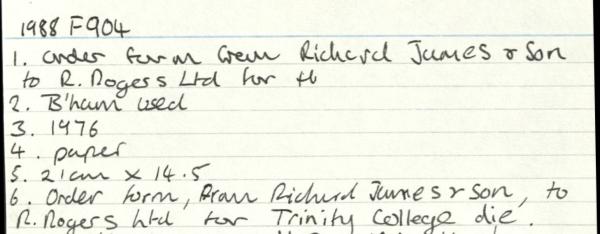 1988 F904
1. Order form from Richard James & Son
to R. Rogers Ltd for
2. B'ham used
3. 1976
4. paper
5. 21cm x 14.5
6. Order form, from Richard James & Son, to
R. Rogers Ltd for Trinity College die.